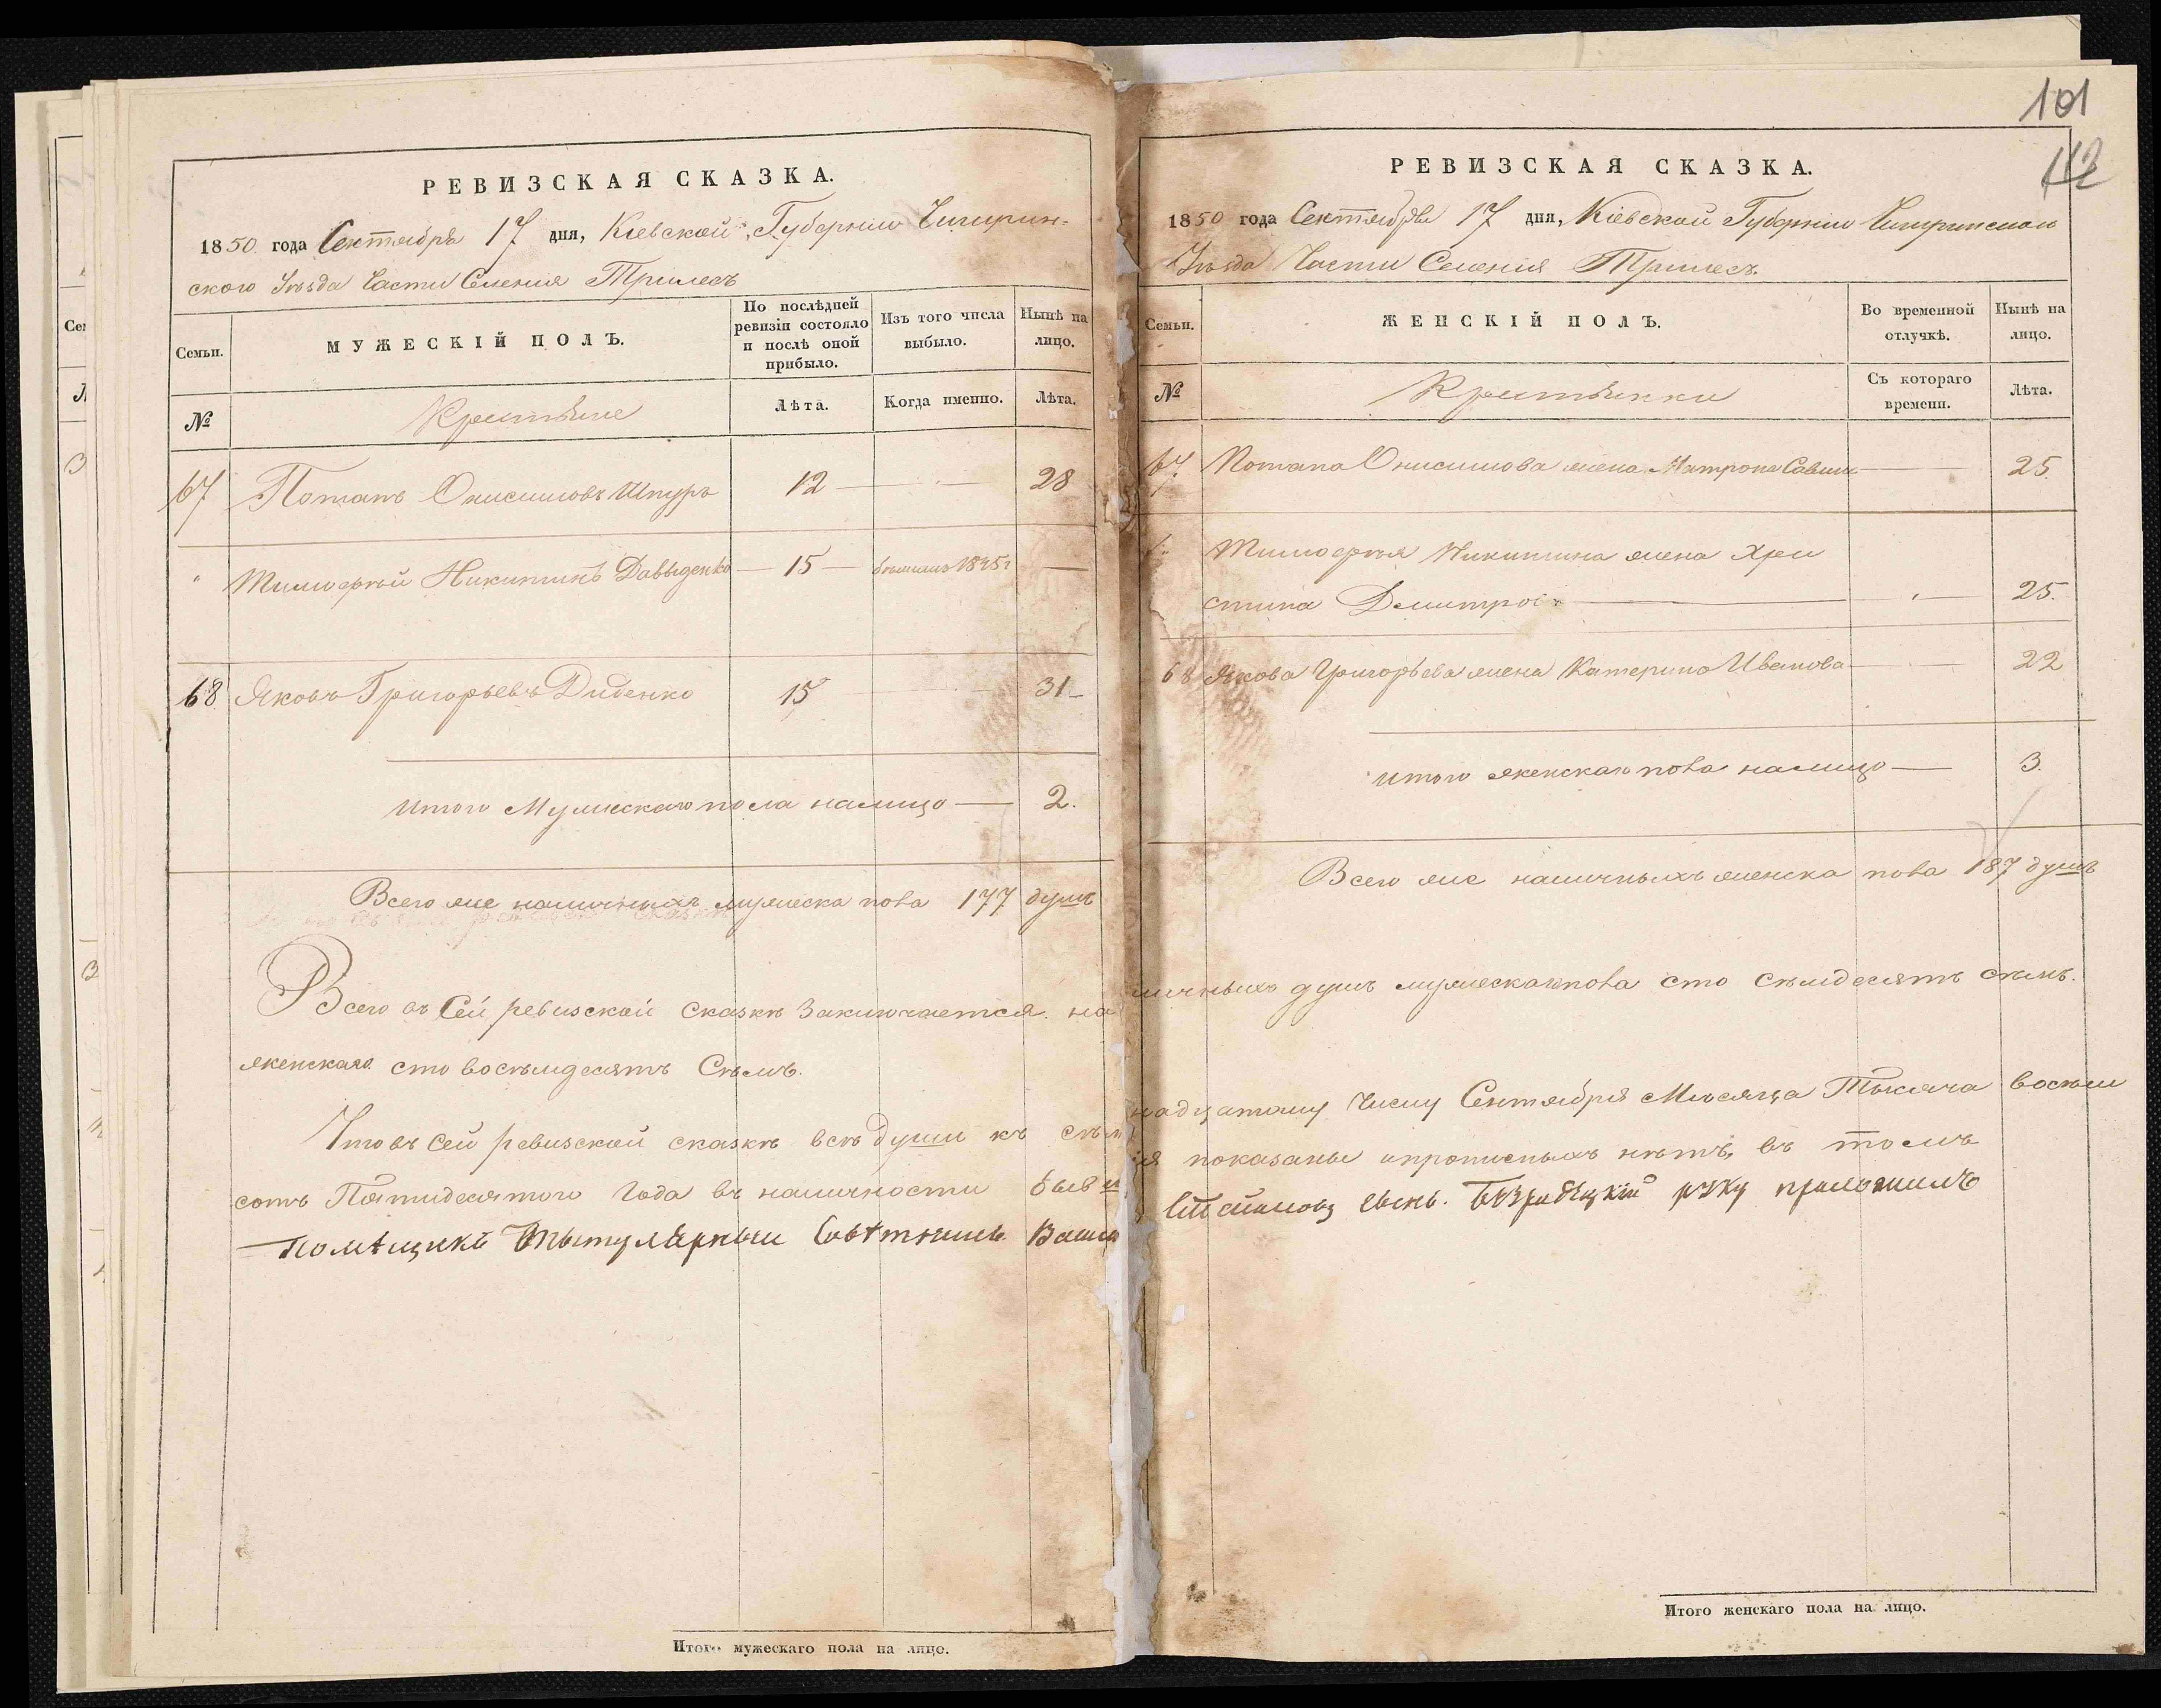 РЕВИЗСКАЯ СКАЗКА.
1850 года Сентября 17 дня, Кіевской Губерніи Чигирин-
ского Уѣзда Части Селенія Трилесъ
Семьи.
МУЖЕСКІЙ ПОЛЪ.
По послѣдней ревизіи состояло и послѣ оной прибыло.
Изъ того числа выбыло.
Нынѣ на лицо.
№
Крестьяне
Лѣта.
Когда именно.
Лѣта.
67 Потапъ Онисимовъ Шпуръ 12 — 28
" Тимофѣй Никитинъ Давыденко — 15 — 1845г —
68 Яковъ Григорьевъ Диденко 15 31
Итого Мужескаго пола налицо — 2.
Всего же наличныхъ мужеска пола 177 душъ
Всего въ Сей ревизской сказкѣ Заключается на
женскаго сто восѣмдесятъ Сѣмъ.
Что въ Сей ревизской сказкѣ всѣ души къ сѣм
сотъ Пятидесятого Года въ наличности
Помѣщикъ Титулярный Совѣтникъ
Итого мужескаго пола на лицо.
101
112
РЕВИЗСКАЯ СКАЗКА.
1850 года Сентября 17 дня, Кіевской Губерніи Чигиринскаго
Уѣзда Части Селенія Трилесъ.
Семьи.
ЖЕНСКІЙ ПОЛЪ.
Во временной отлучкѣ.
Нынѣ на лицо.
№
Крестьянки
Съ котораго времени.
Лѣта.
67. Потапа Онисимова жена Матрона Савина — 25.
Тимофѣя Никитина жена Хри
стина Димитрова — 25.
68 Якова Григорьева жена Катерина Иванова — 22
Итого женскаго пола налицо — 3.
Всего же наличныхъ женска пола 187 душъ
личныхъ душъ мужескаго пола сто сѣмдесятъ сѣмъ.
надцатому Числу Сентября Мѣсяца Тысяча восѣм
ія показаны и прописныхъ нѣтъ, въ томъ
сынъ. Безрадецкій руку приложилъ
Итого женскаго пола на лицо.